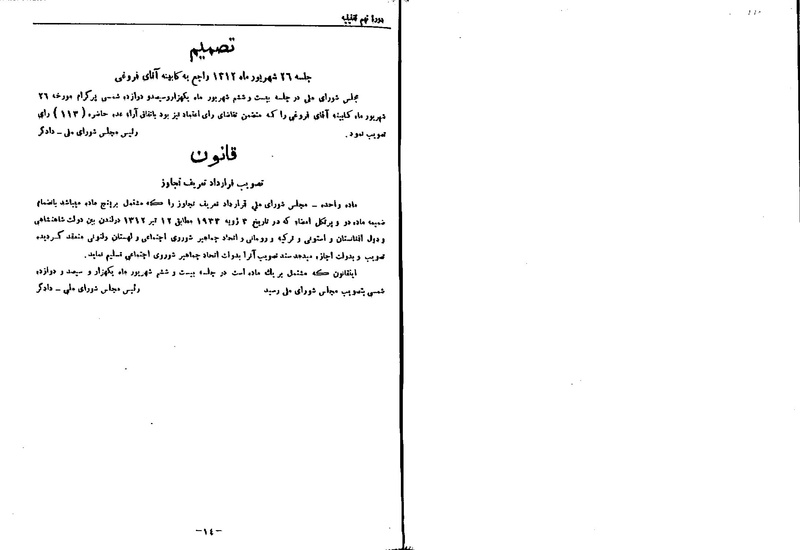 دوره نهم تقنینیه
تصمیم
جلسه ۲۶ شهریور ماه ۱۳۱۲ راجع به کابینه آقای فروغی
مجلس شورای ملی در جلسه بیست و ششم شهریور ماه یکهزاروسیصدو دوازده شمسی پرگرام مورخه ۲۶
شهریور ماه کابینه آقای فروغی را که متضمن تقاضای رای اعتماد نیز بود باتفاق آراء عده حاضره ( ۱۱۳ ) رای
تصویب نمود . رئیس مجلس شورای ملی ــ دادگر
قانون
تصویب قرارداد تعریف تجاوز
ماده واحده ــ مجلس شورای ملی قرارداد تعریف تجاوز را که مشتمل برپنج ماده میباشد بانضمام
ضمیمه ماده دو و پرتکل امضاء که در تاریخ ۳ ژویه ۱۹۳۳ مطابق ۱۲ تیر ۱۳۱۲ درلندن بین دولت شاهنشاهی
و دول افغانستان و استونی و ترکیه و رومانی و اتحاد جماهیر شوروی اجتماعی و لهستان ولتونی منعقد گردیده
تصویب و بدولت اجازه میدهد سند تصویب آنرا بدولت اتحاد جماهیر شوروی اجتماعی تسلیم نماید .
اینقانون که مشتمل بر یک ماده است در جلسه بیست و ششم شهریور ماه یکهزار و سیصد و دوازده
شمسی بتصویب مجلس شورای ملی رسید رئیس مجلس شورای ملی ــ دادگر
-۱٤-